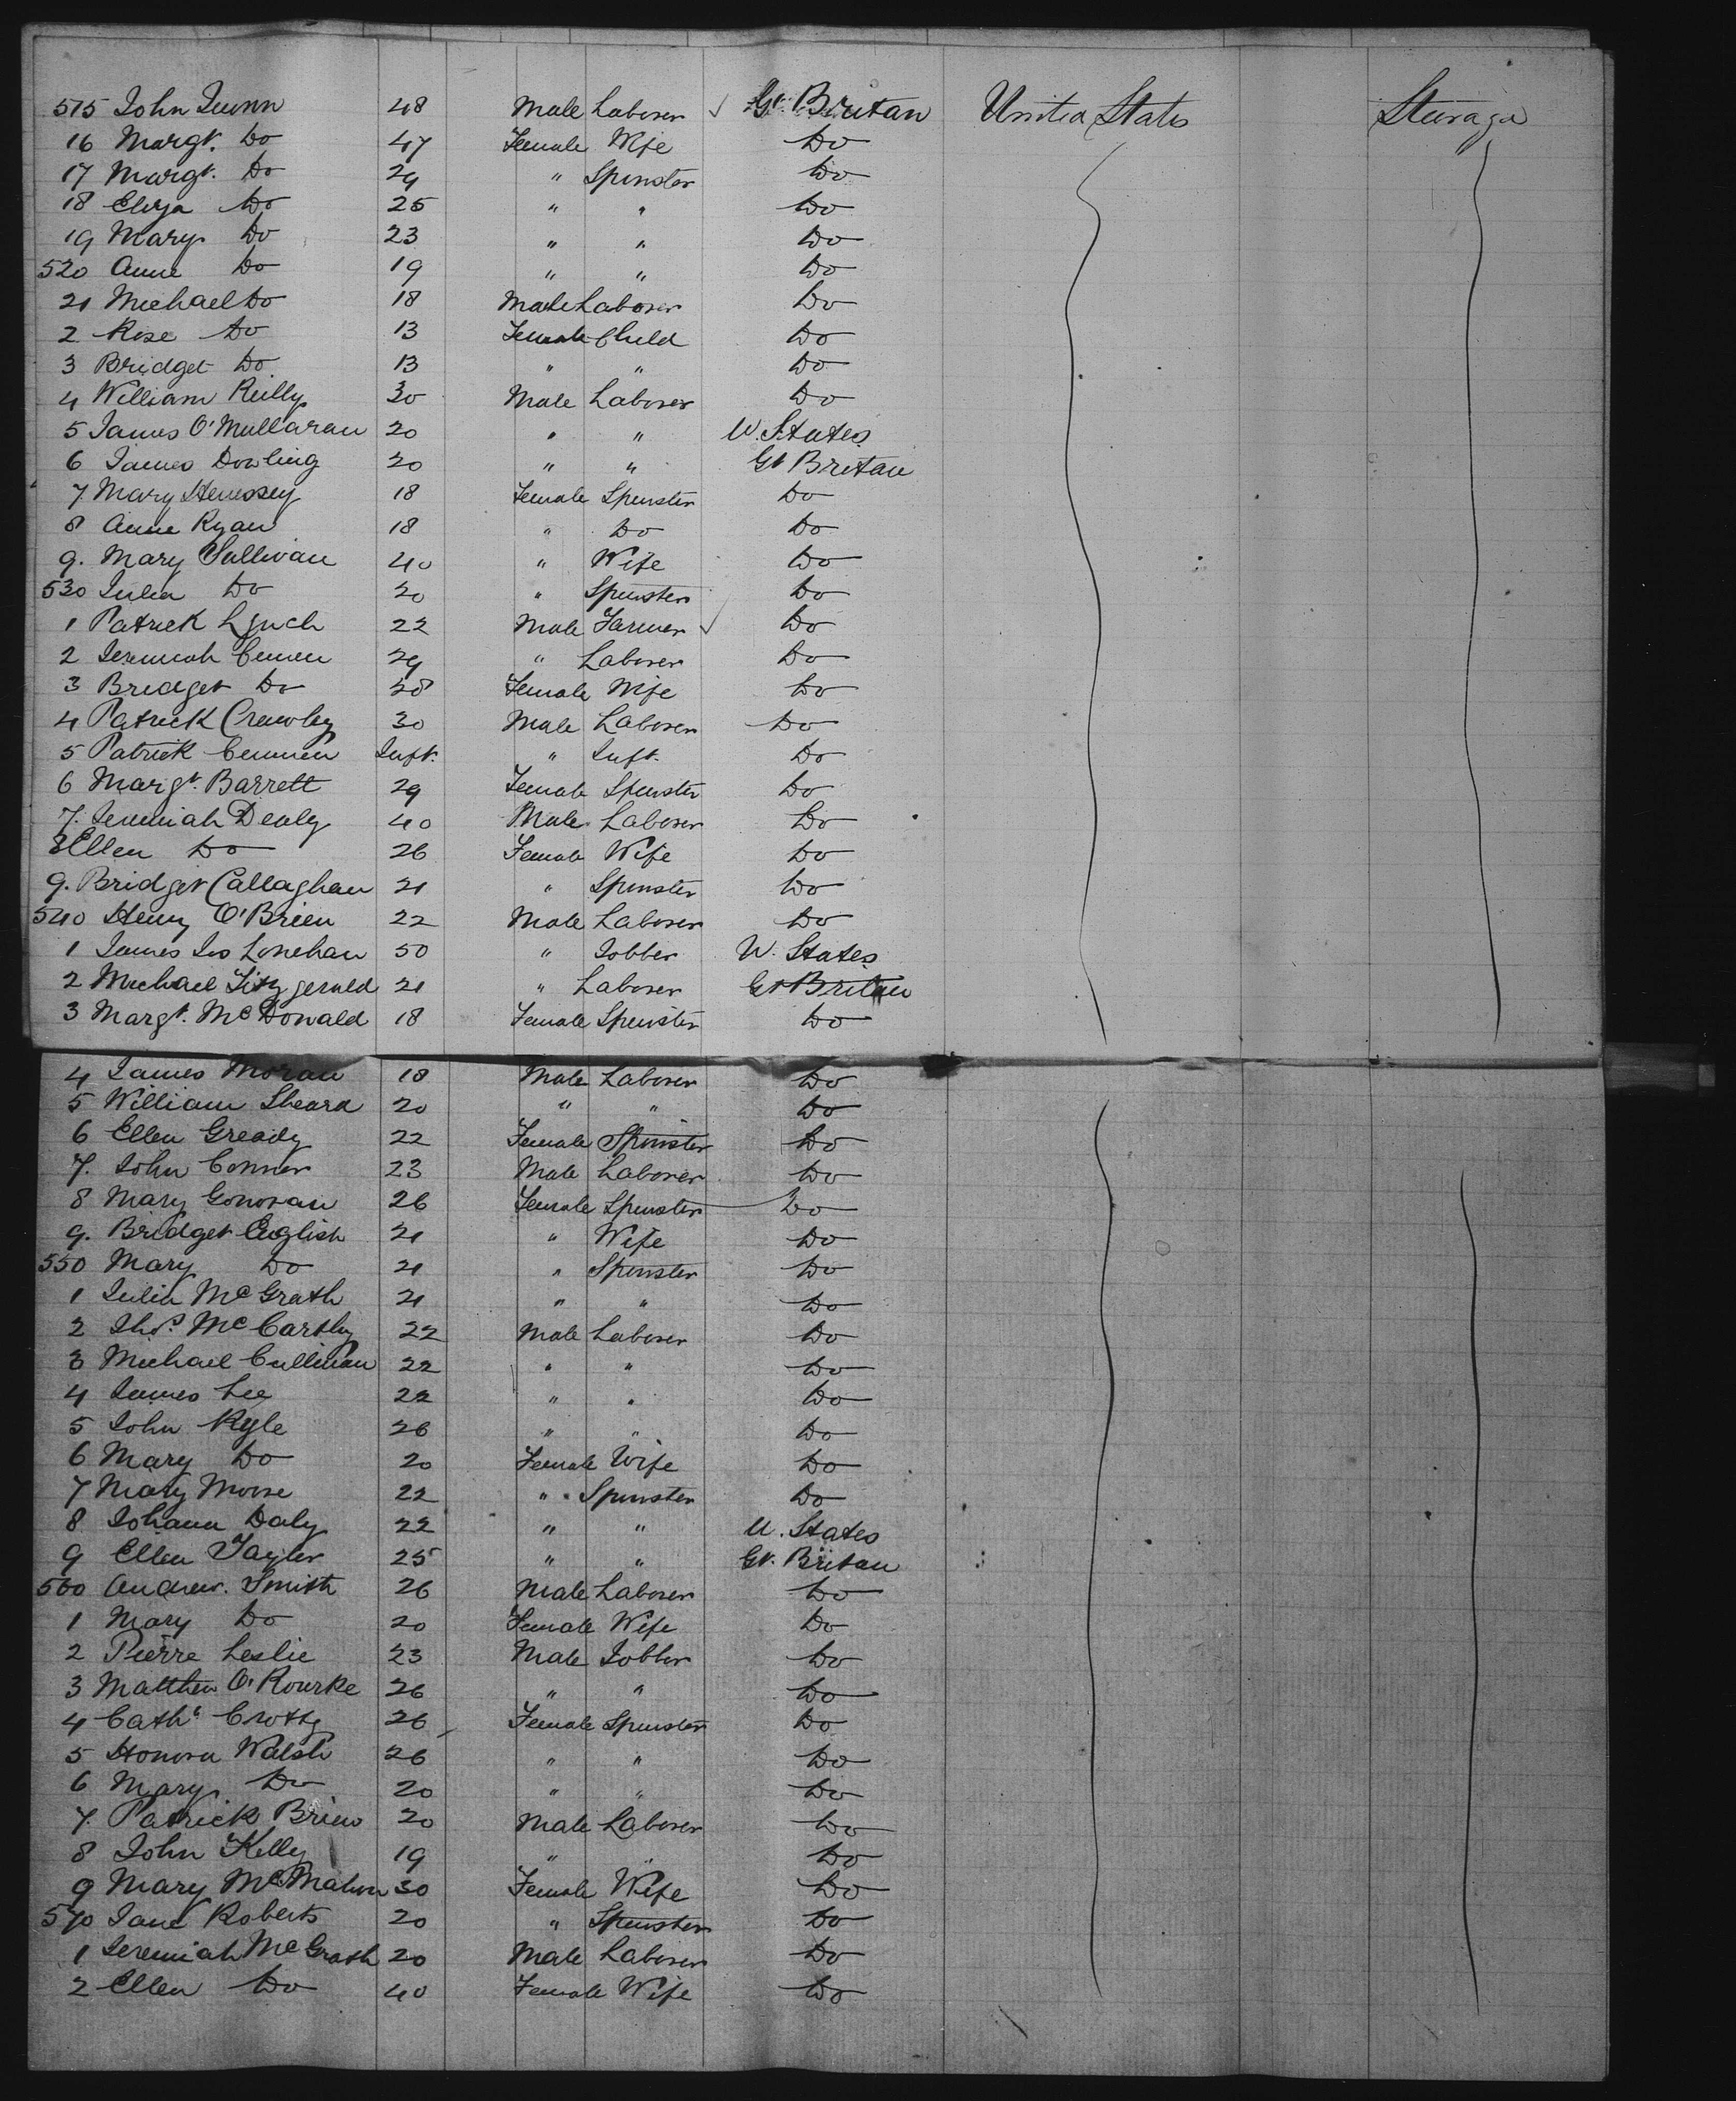 515 John Quinn 48 Male Laborer ✓ Gt. Britan United States Steerage
16 Margt. Do 47 Female Wife Do
17 Margt. Do 29 " Spinster Do
18 Eliza Do 25 " " Do
19 Mary Do 23 " " Do
520 Anne Do 19 " " Do
21 Michael Do 18 Male Laborer Do
2 Rose Do 13 Female Child Do
3 Bridget Do 13 " " Do
4 William Reilly 30 Male Laborer Do
5 James O'Mullaran 20 " " U. States
6 James Dowling 20 " " Gt Britan
7 Mary Henessey 18 Female Spinster Do
8 Anne Ryan 18 " Do Do
9. Mary Sullivan 40 " Wife Do
530 Julia Do 20 " Spinster Do
1 Patrick Lynch 22 Male Farmer ✓ Do
2 Jeremiah 29 " Laborer Do
3 Bridget Do 28 Female Wife Do
4 Patrick Crowley 30 Male Laborer Do
5 Patrick Inft. " Inft. Do
6 Margt. Barrett 29 Female Spinster Do
7. Jeremiah Dealy 40 Male Laborer Do
8 Ellen Do 26 Female Wife Do
9. Bridget Callaghan 21 " Spinster Do
540 Henry O'Brien 22 Male Laborer Do
1 James Jos Lonehan 50 " Jobber U. States
2 Michael Fitzgerald 21 " Laborer Gt Britan
3 Margt. McDonald 18 Female Spinster Do
4 James Moran 18 Male Laborer Do
5 William Sheard 20 " " Do
6 Ellen Gready 22 Female Spinster Do
7. John Connor 23 Male Laborer Do
8 Mary Gonovan 26 Female Spinster Do
9. Bridget English 21 " Wife Do
550 Mary Do 21 " Spinster Do
1 Julia McGrath 21 " " Do
2 Thos. McCarthy 22 Male Laborer Do
3 Michael Cullinan 22 " " Do
4 James Lee 22 " " Do
5 John Kyle 26 " " Do
6 Mary Do 20 Female Wife Do
7 Mary Moore 22 " Spinster Do
8 Johana Daly 22 " " U. States
9 Ellen Taylor 25 " " Gt. Britan
560 Andrew. Smith 26 Male Laborer Do
1 Mary Do 20 Female Wife Do
2 Pierre Leslie 23 Male Jobber Do
3 Matthew O'Rourke 26 " " Do
4 Cathe Crotty 26 Female Spinster Do
5 Honora Walsh 26 " " Do
6 Mary Do 20 " " Do
7. Patrick Brien 20 Male Laborer Do
8 John Kelly 19 " " Do
9 Mary McMahon 30 Female Wife Do
570 Jane Roberts 20 " Spinster Do
1 Jeremiah McGrath 20 Male Laborer Do
2 Ellen Do 40 Female Wife Do